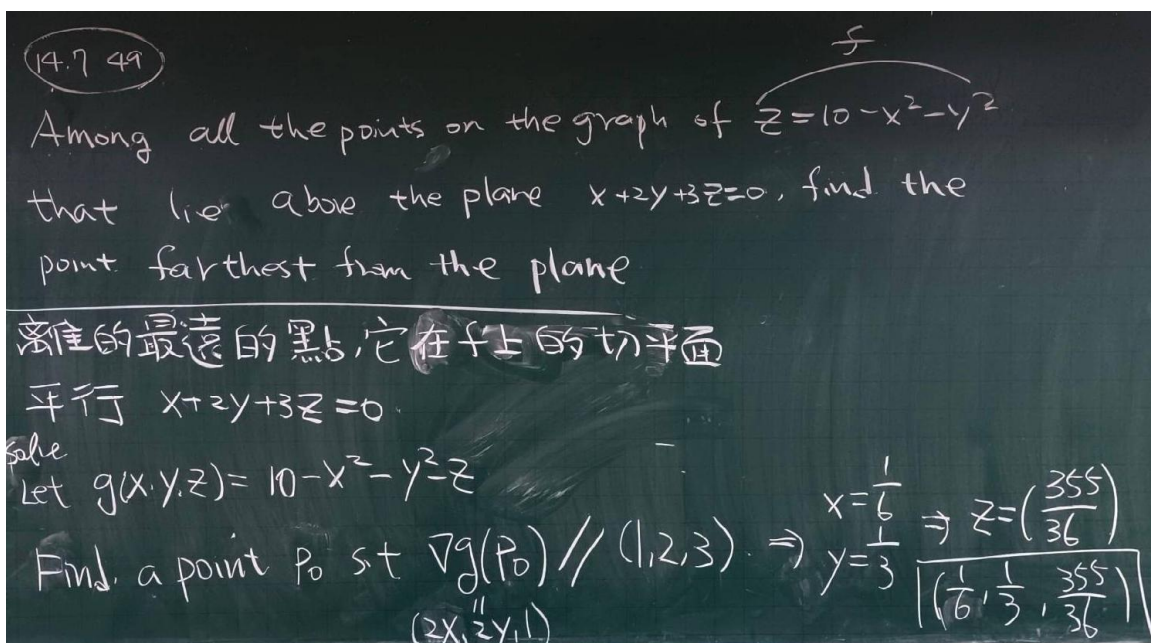 14.7 49
f
Among all the points on the graph of z=10-x²-y²
that lie above the plane x+2y+3z=0, find the
point farthest from the plane
離的最遠的點,它在f上的切平面
平行 x+2y+3z=0
solve
Let g(x,y,z)= 10-x²-y²-z
Find a point P₀ s.t ∇g(P₀) // (1,2,3) ⇒ x=1/6 y=1/3 ⇒ z=(355/36)
(2x,2y,1)
(1/6, 1/3, 355/36)